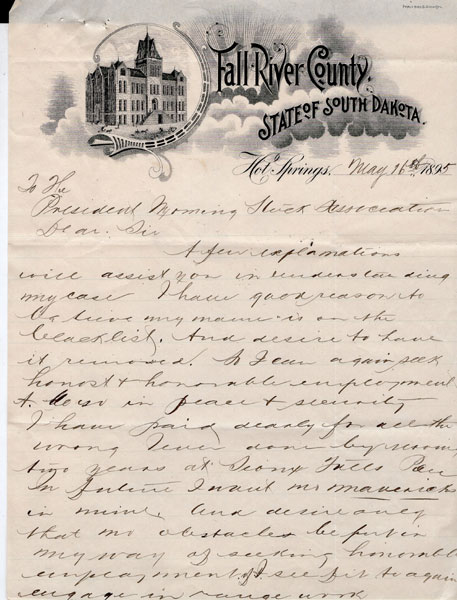 Fall River County.
STATE OF SOUTH DAKOTA.
Hot Springs, May 16th 1895
To The
President Wyoming Stock Association
Dear Sir
A few explanations
will assist you in understanding
my case I have good reason to
believe my name is on the
blacklist. And desire to have
it removed. So I can again seek
honest & honorable employment
& live in peace & security
I have paid dearly for all the
wrong I ever done by
two years at Sioux Falls Pen
In future I want no mavericks
in mine. And desire only
that no obstacles be put in
my way of seeking honorable
employment if I see fit to again
engage in range work